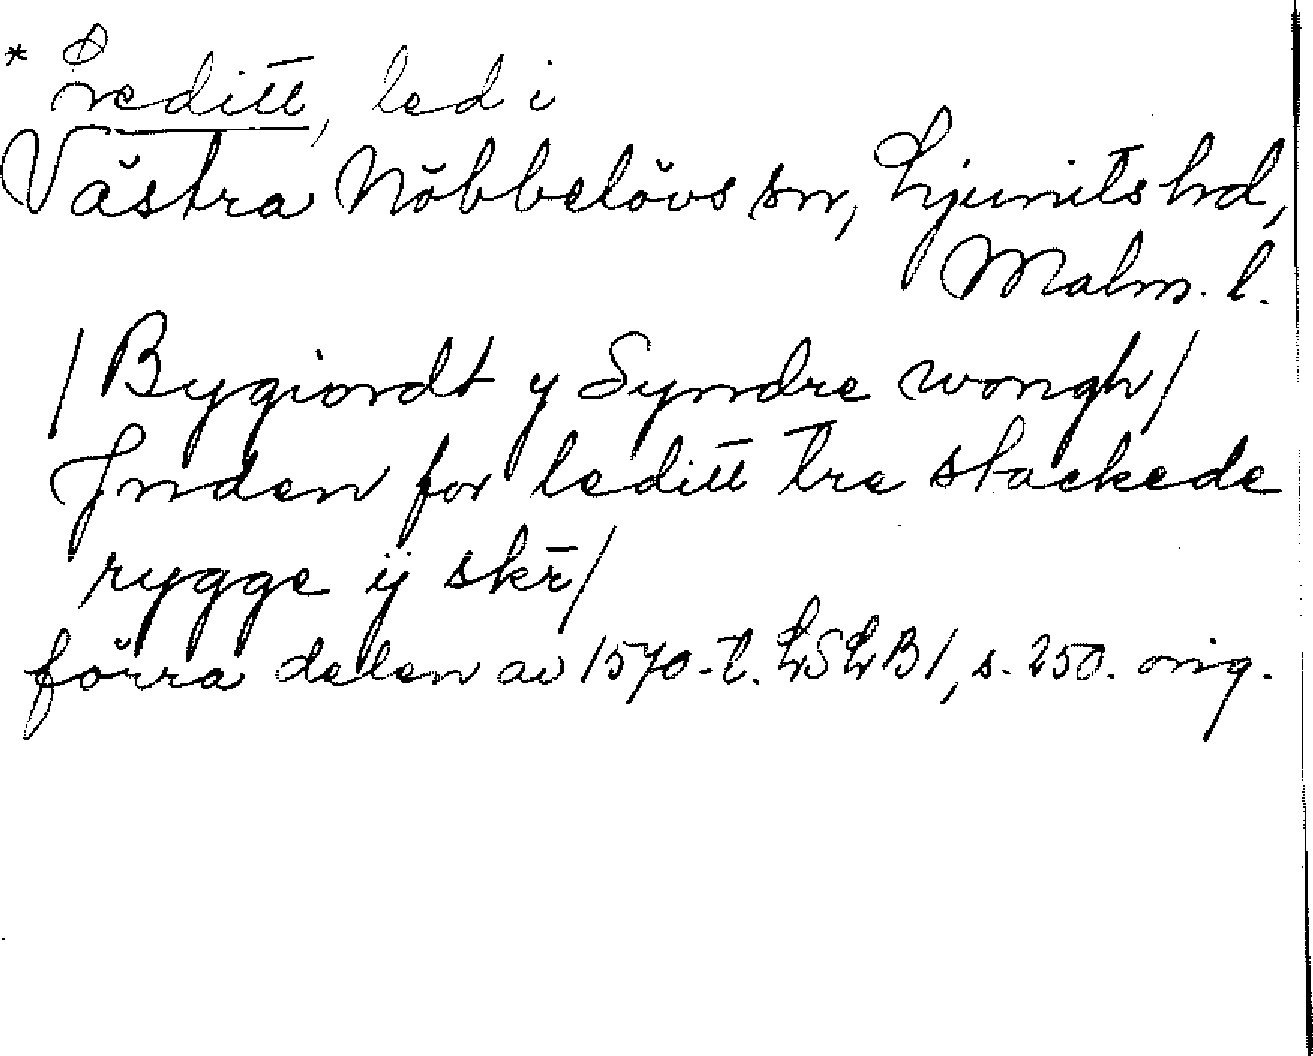 * Leditt, led i
Västra Nöbbelövs sn, Ljunits hd,
Malm. l.
/Bygiordt y Syndre wongh/
Jnden for leditt tre stackede
rygge ij skē/
förra delen av 1570-t. LSLB1, s. 250. orig.